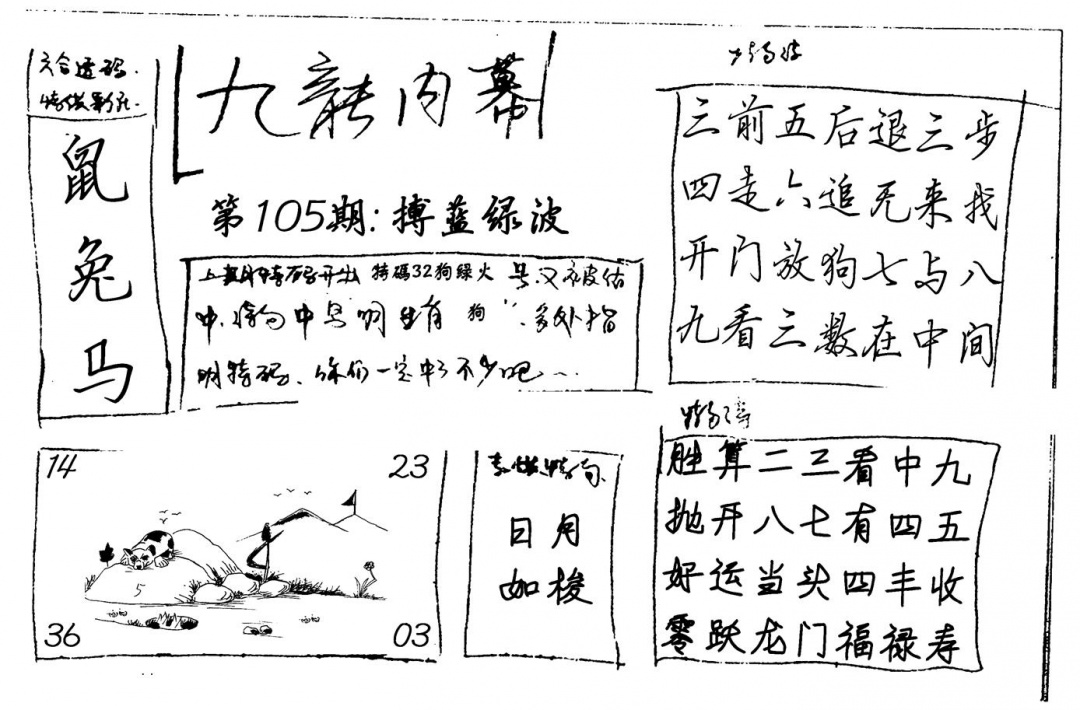 六合透码.
鼠
兔
马
九龍内幕
第105期:搏蓝绿波
上期特码开出 特碼32狗綠火 号.又被估
中. 中号明生肖 狗 . 多处指
明特码. 你们一定中了不少吧
三前五后退三步
四走六追无来找
开门放狗七与八
九看三数在中间
14
23
5
36
03
日月
如梭
胜算二三看中九
抛开八七有四五
好运当头四丰收
零跃龙门福禄寿